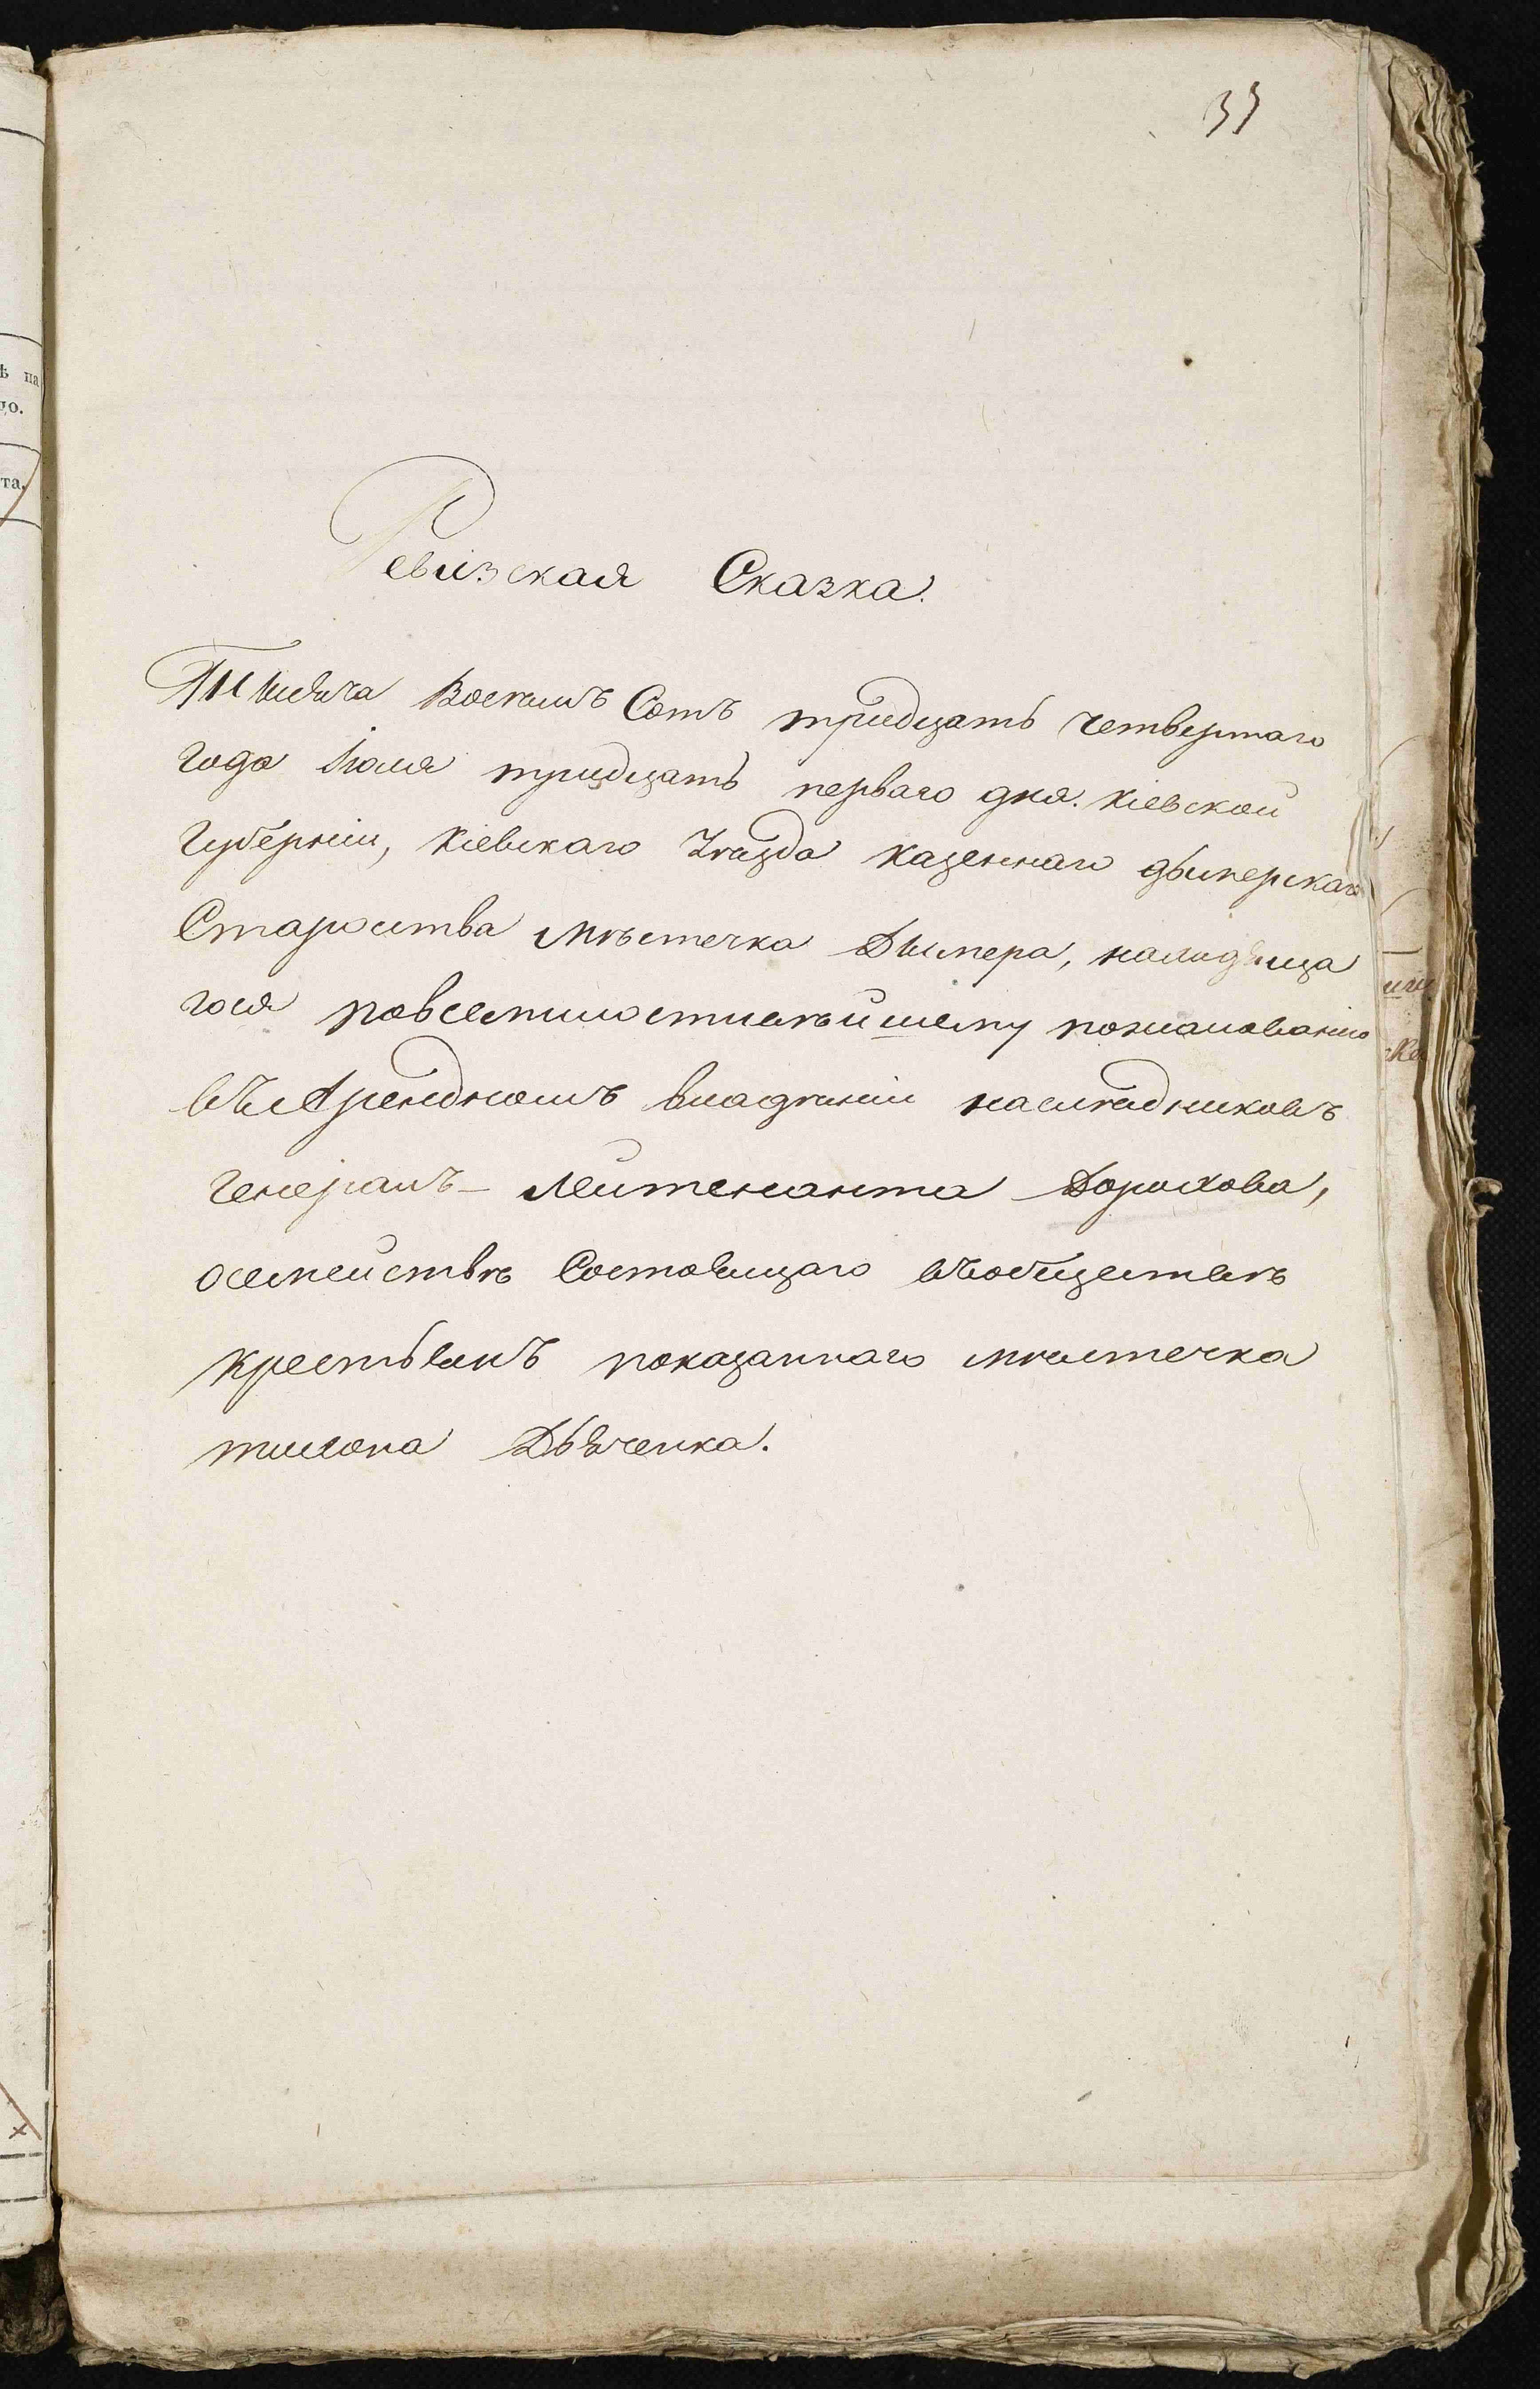 33
Ревизская Сказка.
Тысяча Восемъ Сотъ тридцать четвертаго
года Іюля тридцать перваго дня. Кіевской
Губерніи, Кіевскаго Уезда Казеннаго дымерскаго
Староства Мѣстечка Дымера, находяща
гося повсемилостивѣйшему пожалованію
въ Арендномъ владѣніи наслѣдниковъ
Генералъ-Лейтенанта Дорохова,
осемействѣ Состоящаго въобществѣ
Крестьянъ показаннаго мѣстечка
тихона Дьяченка.
ѣ на
до.
та.